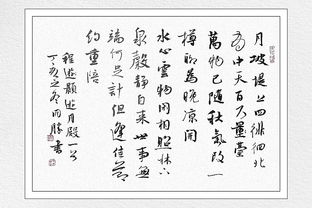 月坡堤上四徘徊北
有中天百尺臺
萬物已隨秋氣改一
樽聊為晚涼開
水心雲影閒相照林下
泉聲靜自來世事無
端何足計但逢佳節
約重陪
程顥遊月陂一首
丁亥之冬雨勝書